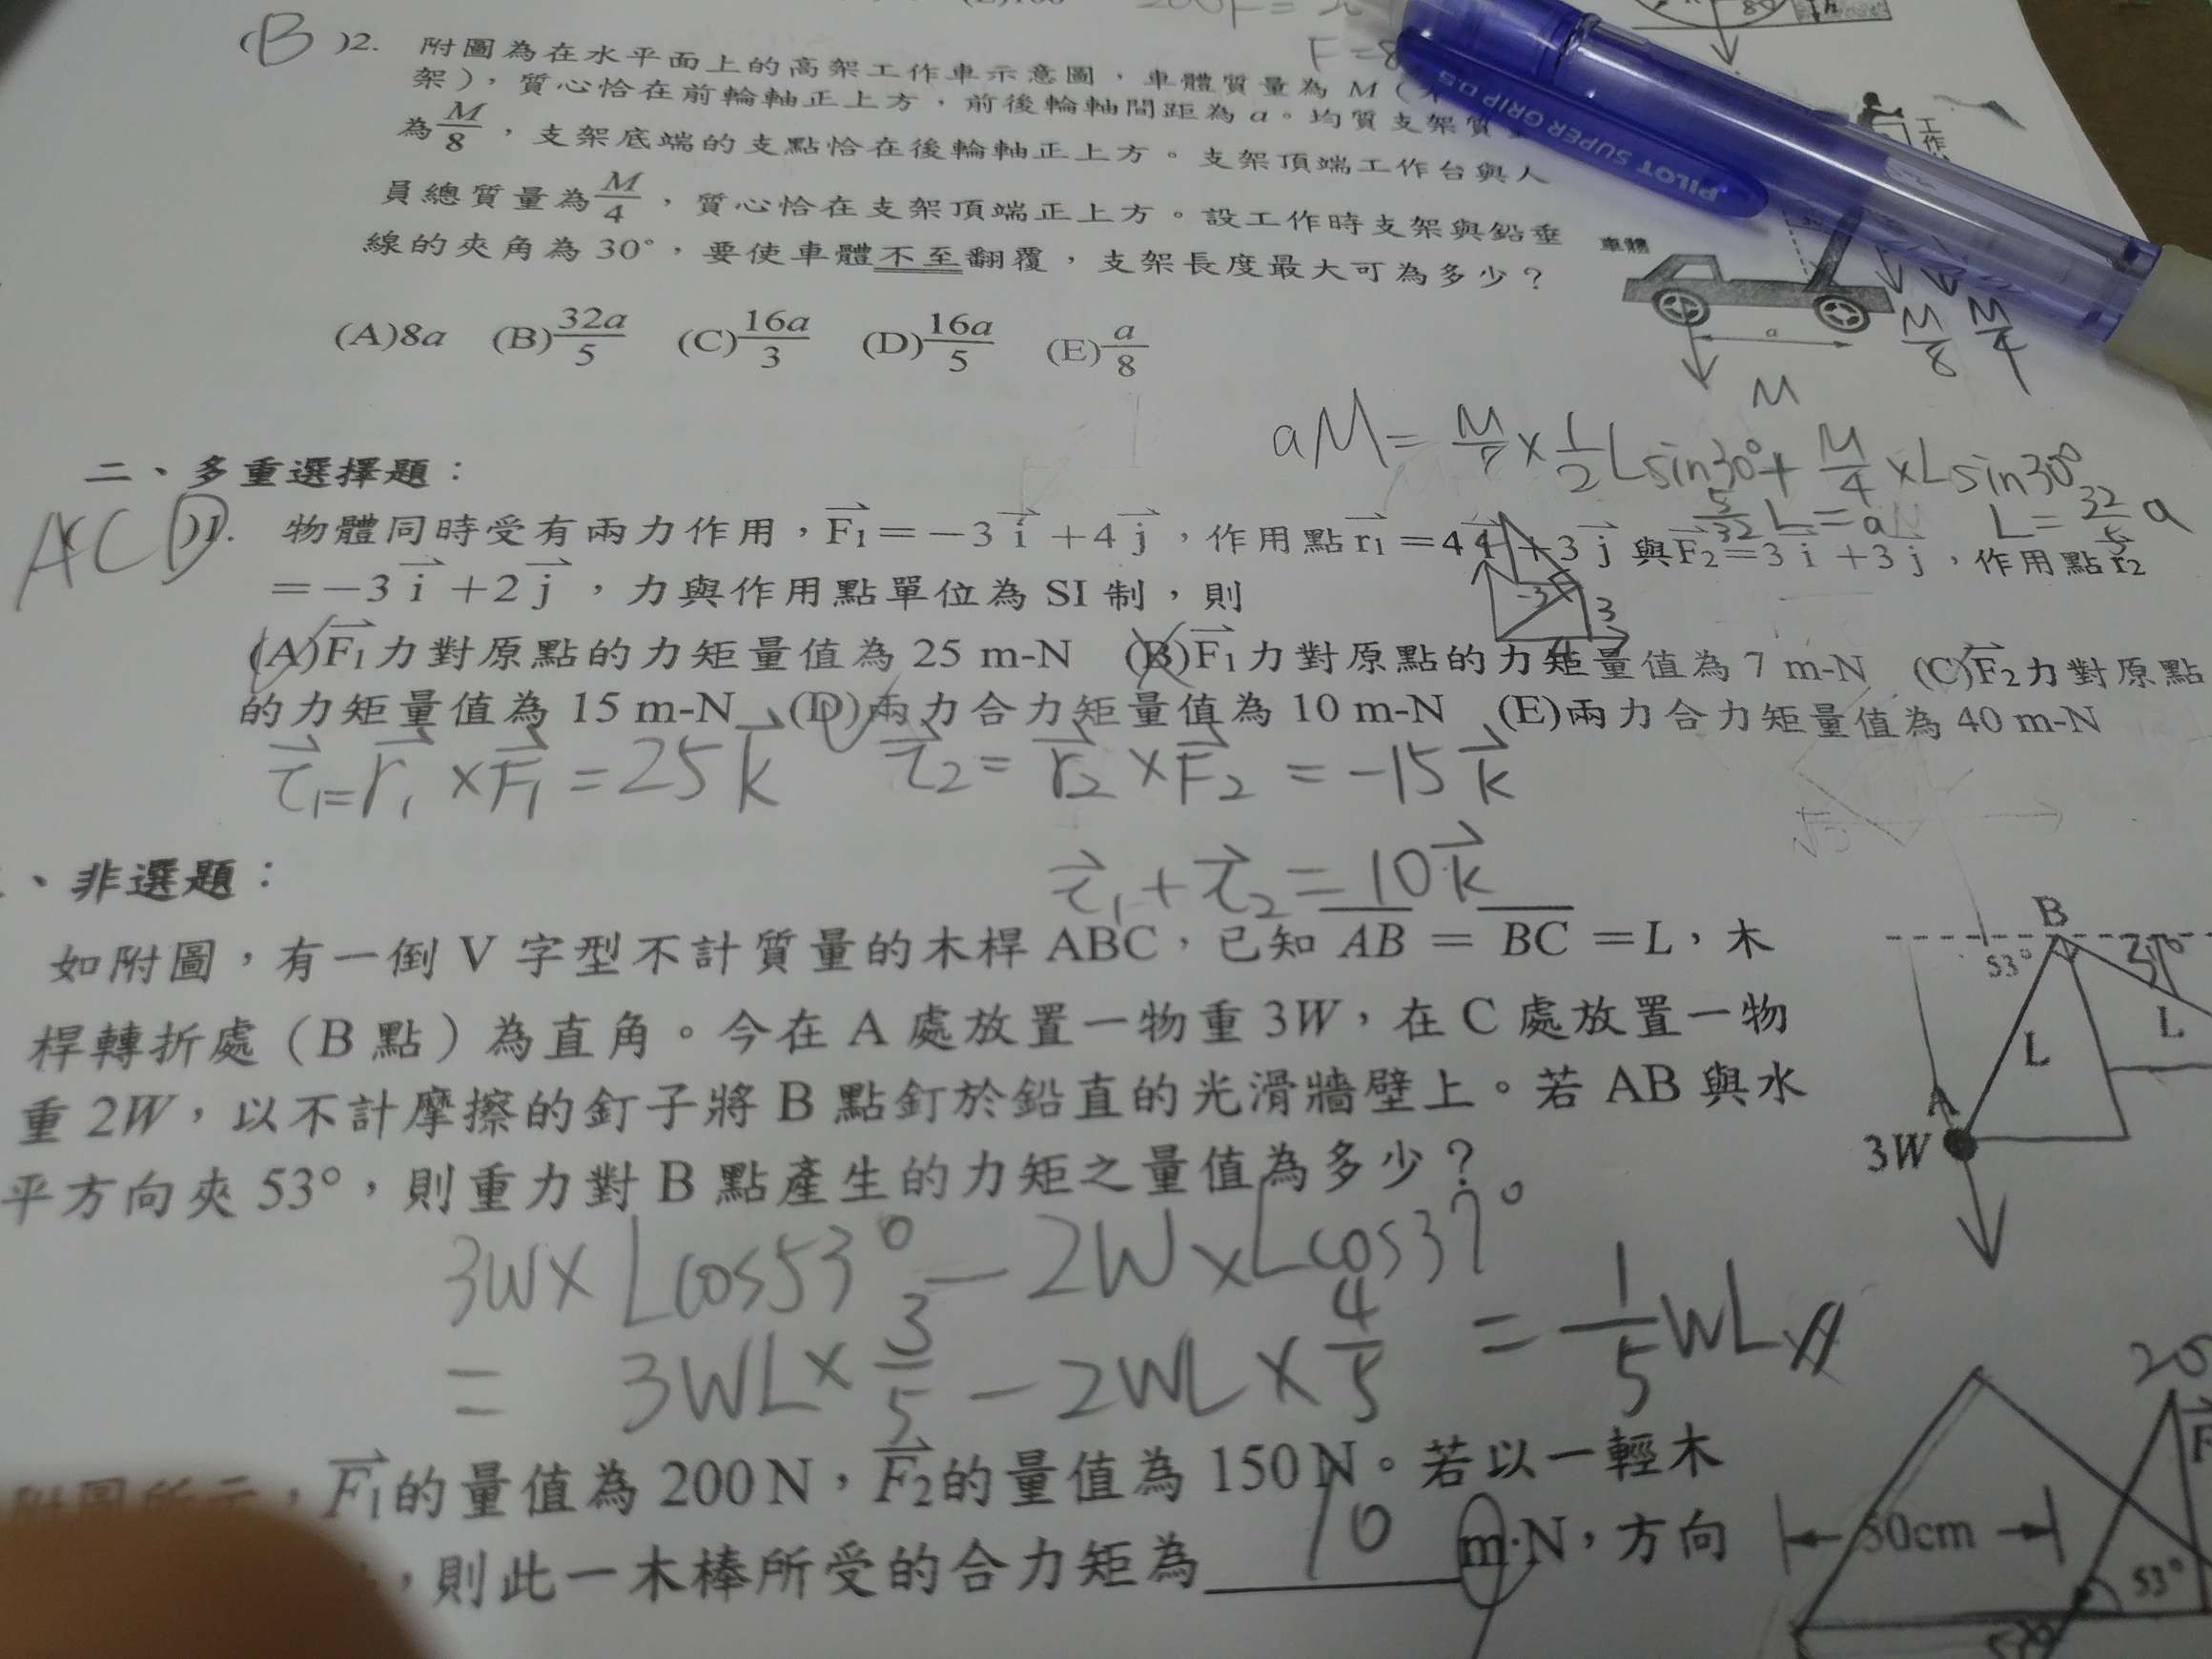 (B)2. 附圖為在水平面上的高架工作車示意圖，車體質量為 M（
架），質心恰在前輪軸正上方，前後輪軸間距為 a。均質支架質
為 M/8，支架底端的支點恰在後輪軸正上方。支架頂端工作台與人
員總質量為 M/4，質心恰在支架頂端正上方。設工作時支架與鉛垂
線的夾角為 30°，要使車體不至翻覆，支架長度最大可為多少？
(A)8a (B)32a/5 (C)16a/3 (D)16a/5 (E)a/8
F=8
PILOT SUPER GRIP 0.5
工作
車體
a
M/8 M/4
M
aM = M/8 × 1/2 L sin30° + M/4 × L sin30°
5/32 L = a L = 32/5 a
二、多重選擇題：
ACD
)1. 物體同時受有兩力作用，F₁=−3i+4j，作用點r₁=4i+3j與F₂=3i+3j，作用點r₂
=−3i+2j，力與作用點單位為 SI 制，則
(A)F₁力對原點的力矩量值為 25 m-N (B)F₁力對原點的力矩量值為 7 m-N (C)F₂力對原點
的力矩量值為 15 m-N (D)兩力合力矩量值為 10 m-N (E)兩力合力矩量值為 40 m-N
-3 3 4
τ₁=r₁×F₁=25k τ₂=r₂×F₂=-15k
τ₁+τ₂=10k
、非選題：
如附圖，有一倒 V 字型不計質量的木桿 ABC，已知 AB = BC =L，木
桿轉折處（B 點）為直角。今在 A 處放置一物重 3W，在 C 處放置一物
重 2W，以不計摩擦的釘子將 B 點釘於鉛直的光滑牆壁上。若 AB 與水
平方向夾 53°，則重力對 B 點產生的力矩之量值為多少？
B
53° 37°
L L
A
3W
3W×Lcos53°−2W×Lcos37°
= 3WL×3/5−2WL×4/5 = 1/5 WL
附圖所示，F₁的量值為 200 N，F₂的量值為 150 N。若以一輕木
，則此一木棒所受的合力矩為 10 m·N，方向
50cm
53°